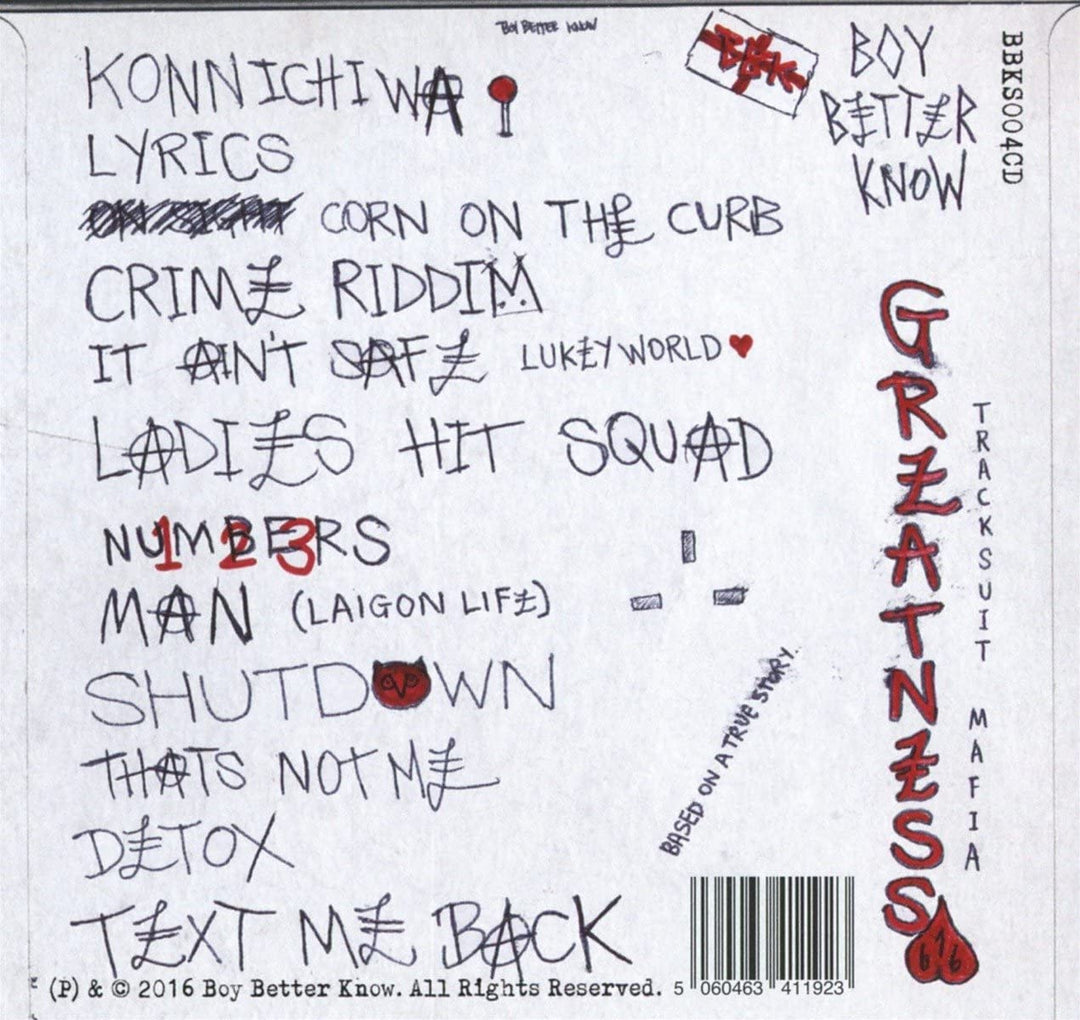 BOY BETTER KNOW
KONNICHIWA
LYRICS
CORN ON THE CURB
CRIME RIDDIM
IT AIN'T SAFE LUKEYWORLD
LADIES HIT SQUAD
NUMBERS
1 2 3
MAN (LAIGON LIFE)
SHUTDOWN
THATS NOT ME
DETOX
TEXT ME BACK
BBK
BOY
BETTER
KNOW
BBKS004CD
GREATNESS
TRACKSUIT MAFIA
616
BASED ON A TRUE STORY
5 060463 411923
(P) & © 2016 Boy Better Know. All Rights Reserved.